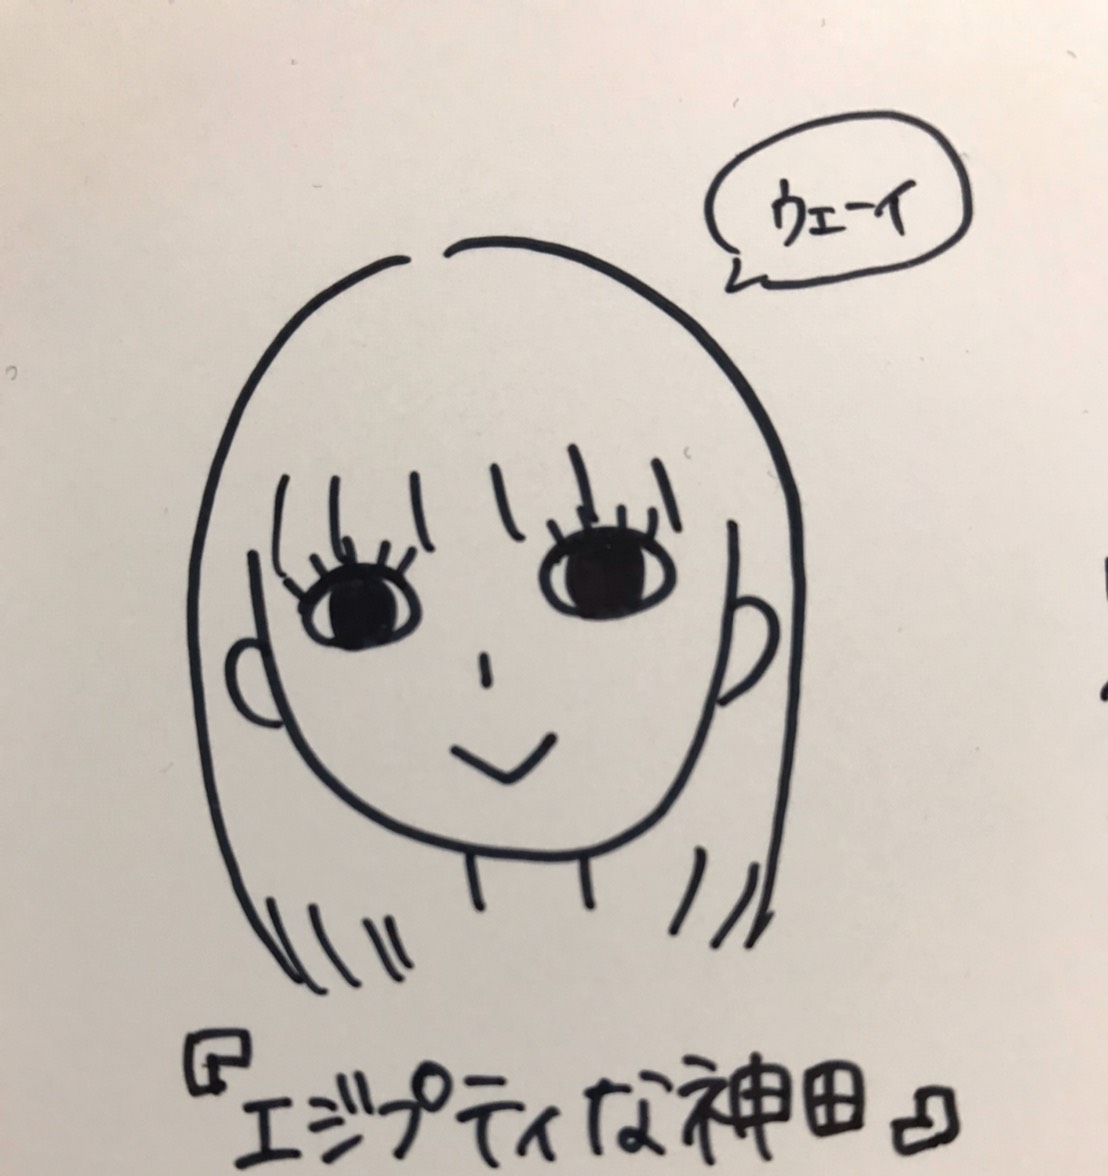 ウェーイ
『エジプティな神田』